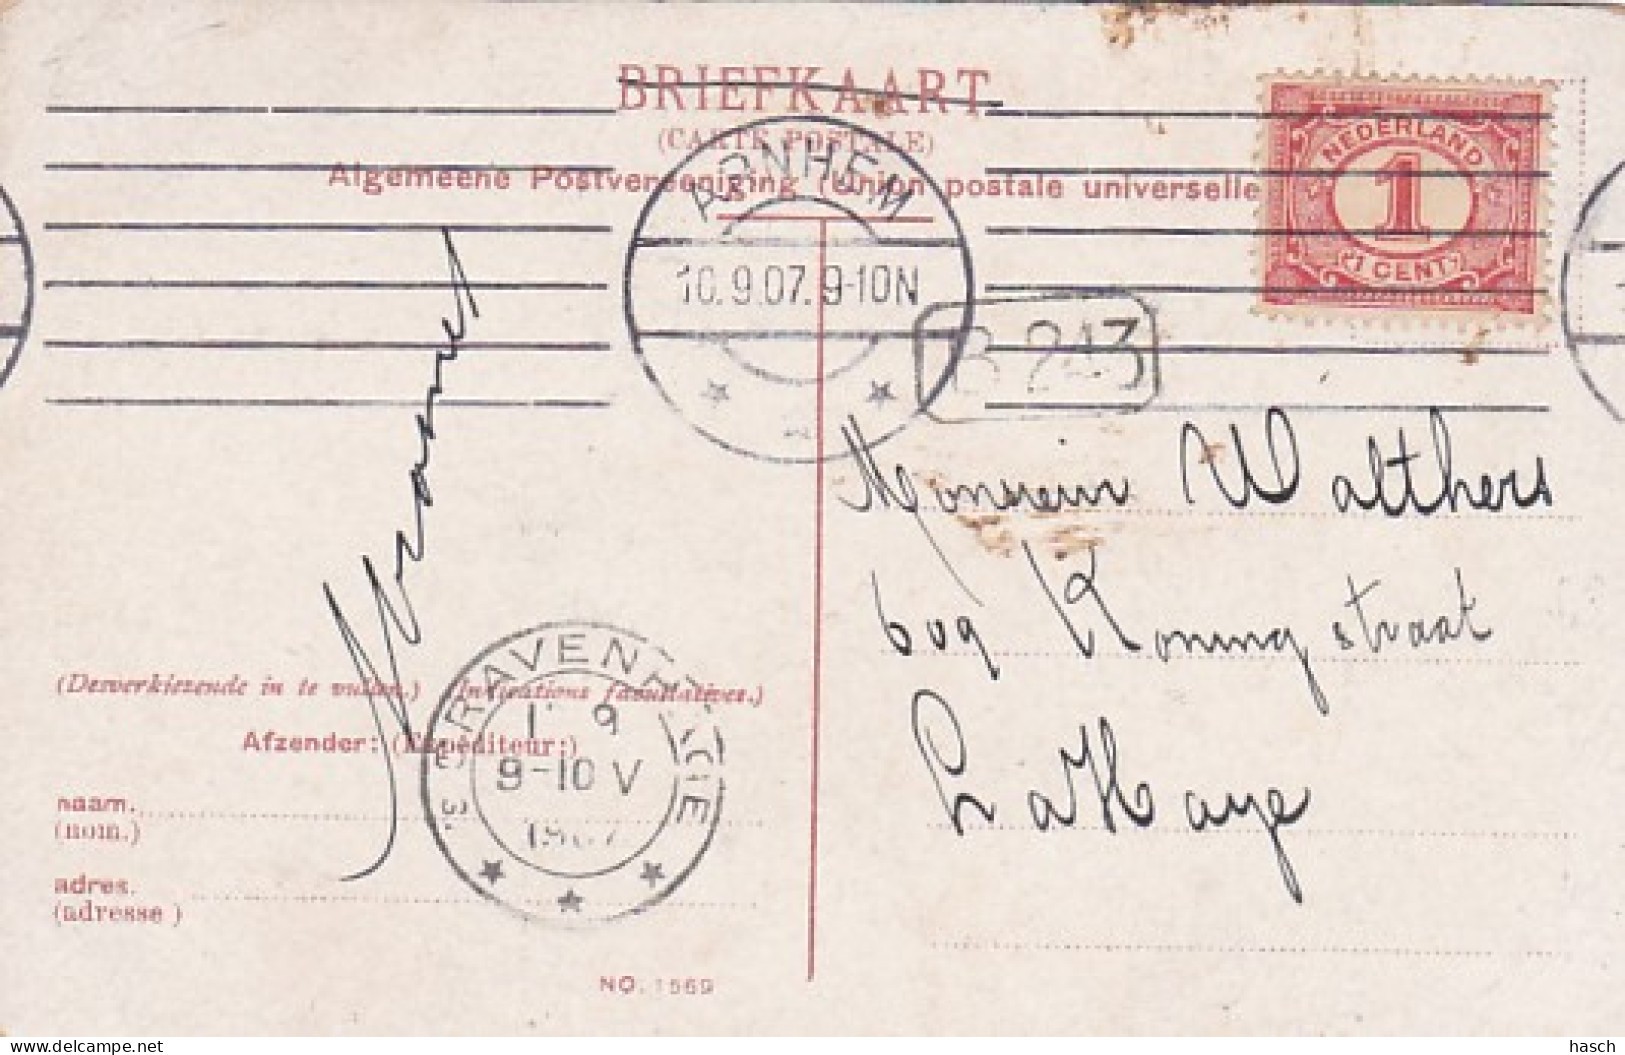 BRIEFKAART
(CARTE POSTALE)
Algemeene Postvereeniging (Union postale universelle
NEDERLAND
1
1 CENT
ARNHEM
10.9.07. 9-10N
B 243
Monsieur Walthers
609 Koningstraat
La Haye
'S GRAVENHAGE
9
9-10 V
1907
(Desverkiezende in te vullen.) (Indications facultatives.)
Afzender: (Expéditeur:)
naam.
(nom.)
adres.
(adresse )
NO. 1569
www.delcampe.net
hasch